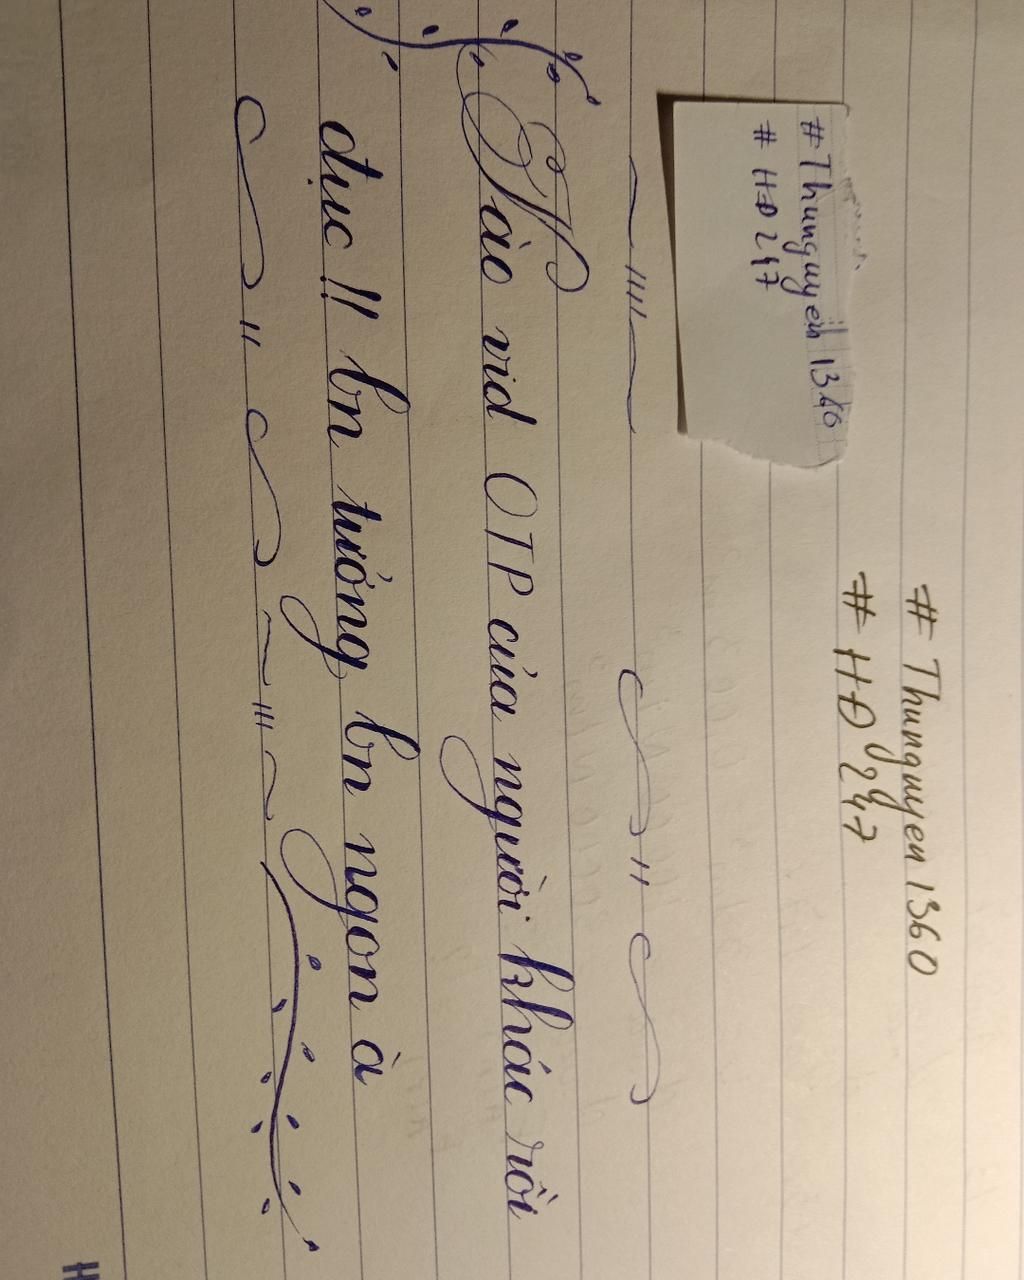 # Thungnyen 1360
# HĐ 247
# Thungnyen 1360
# HĐ 247
Vào vid OTP của người khác rồi
đục || bn tưởng bn ngon à
H